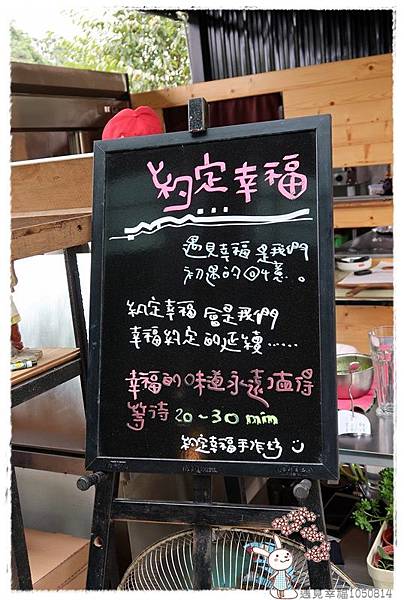 約定幸福
遇見幸福 是我們
初遇的回憶。
約定幸福 會是我們
幸福約定的延續......
幸福的味道永遠值得
等待 20~30 min
約定幸福手作坊
遇見幸福1050814